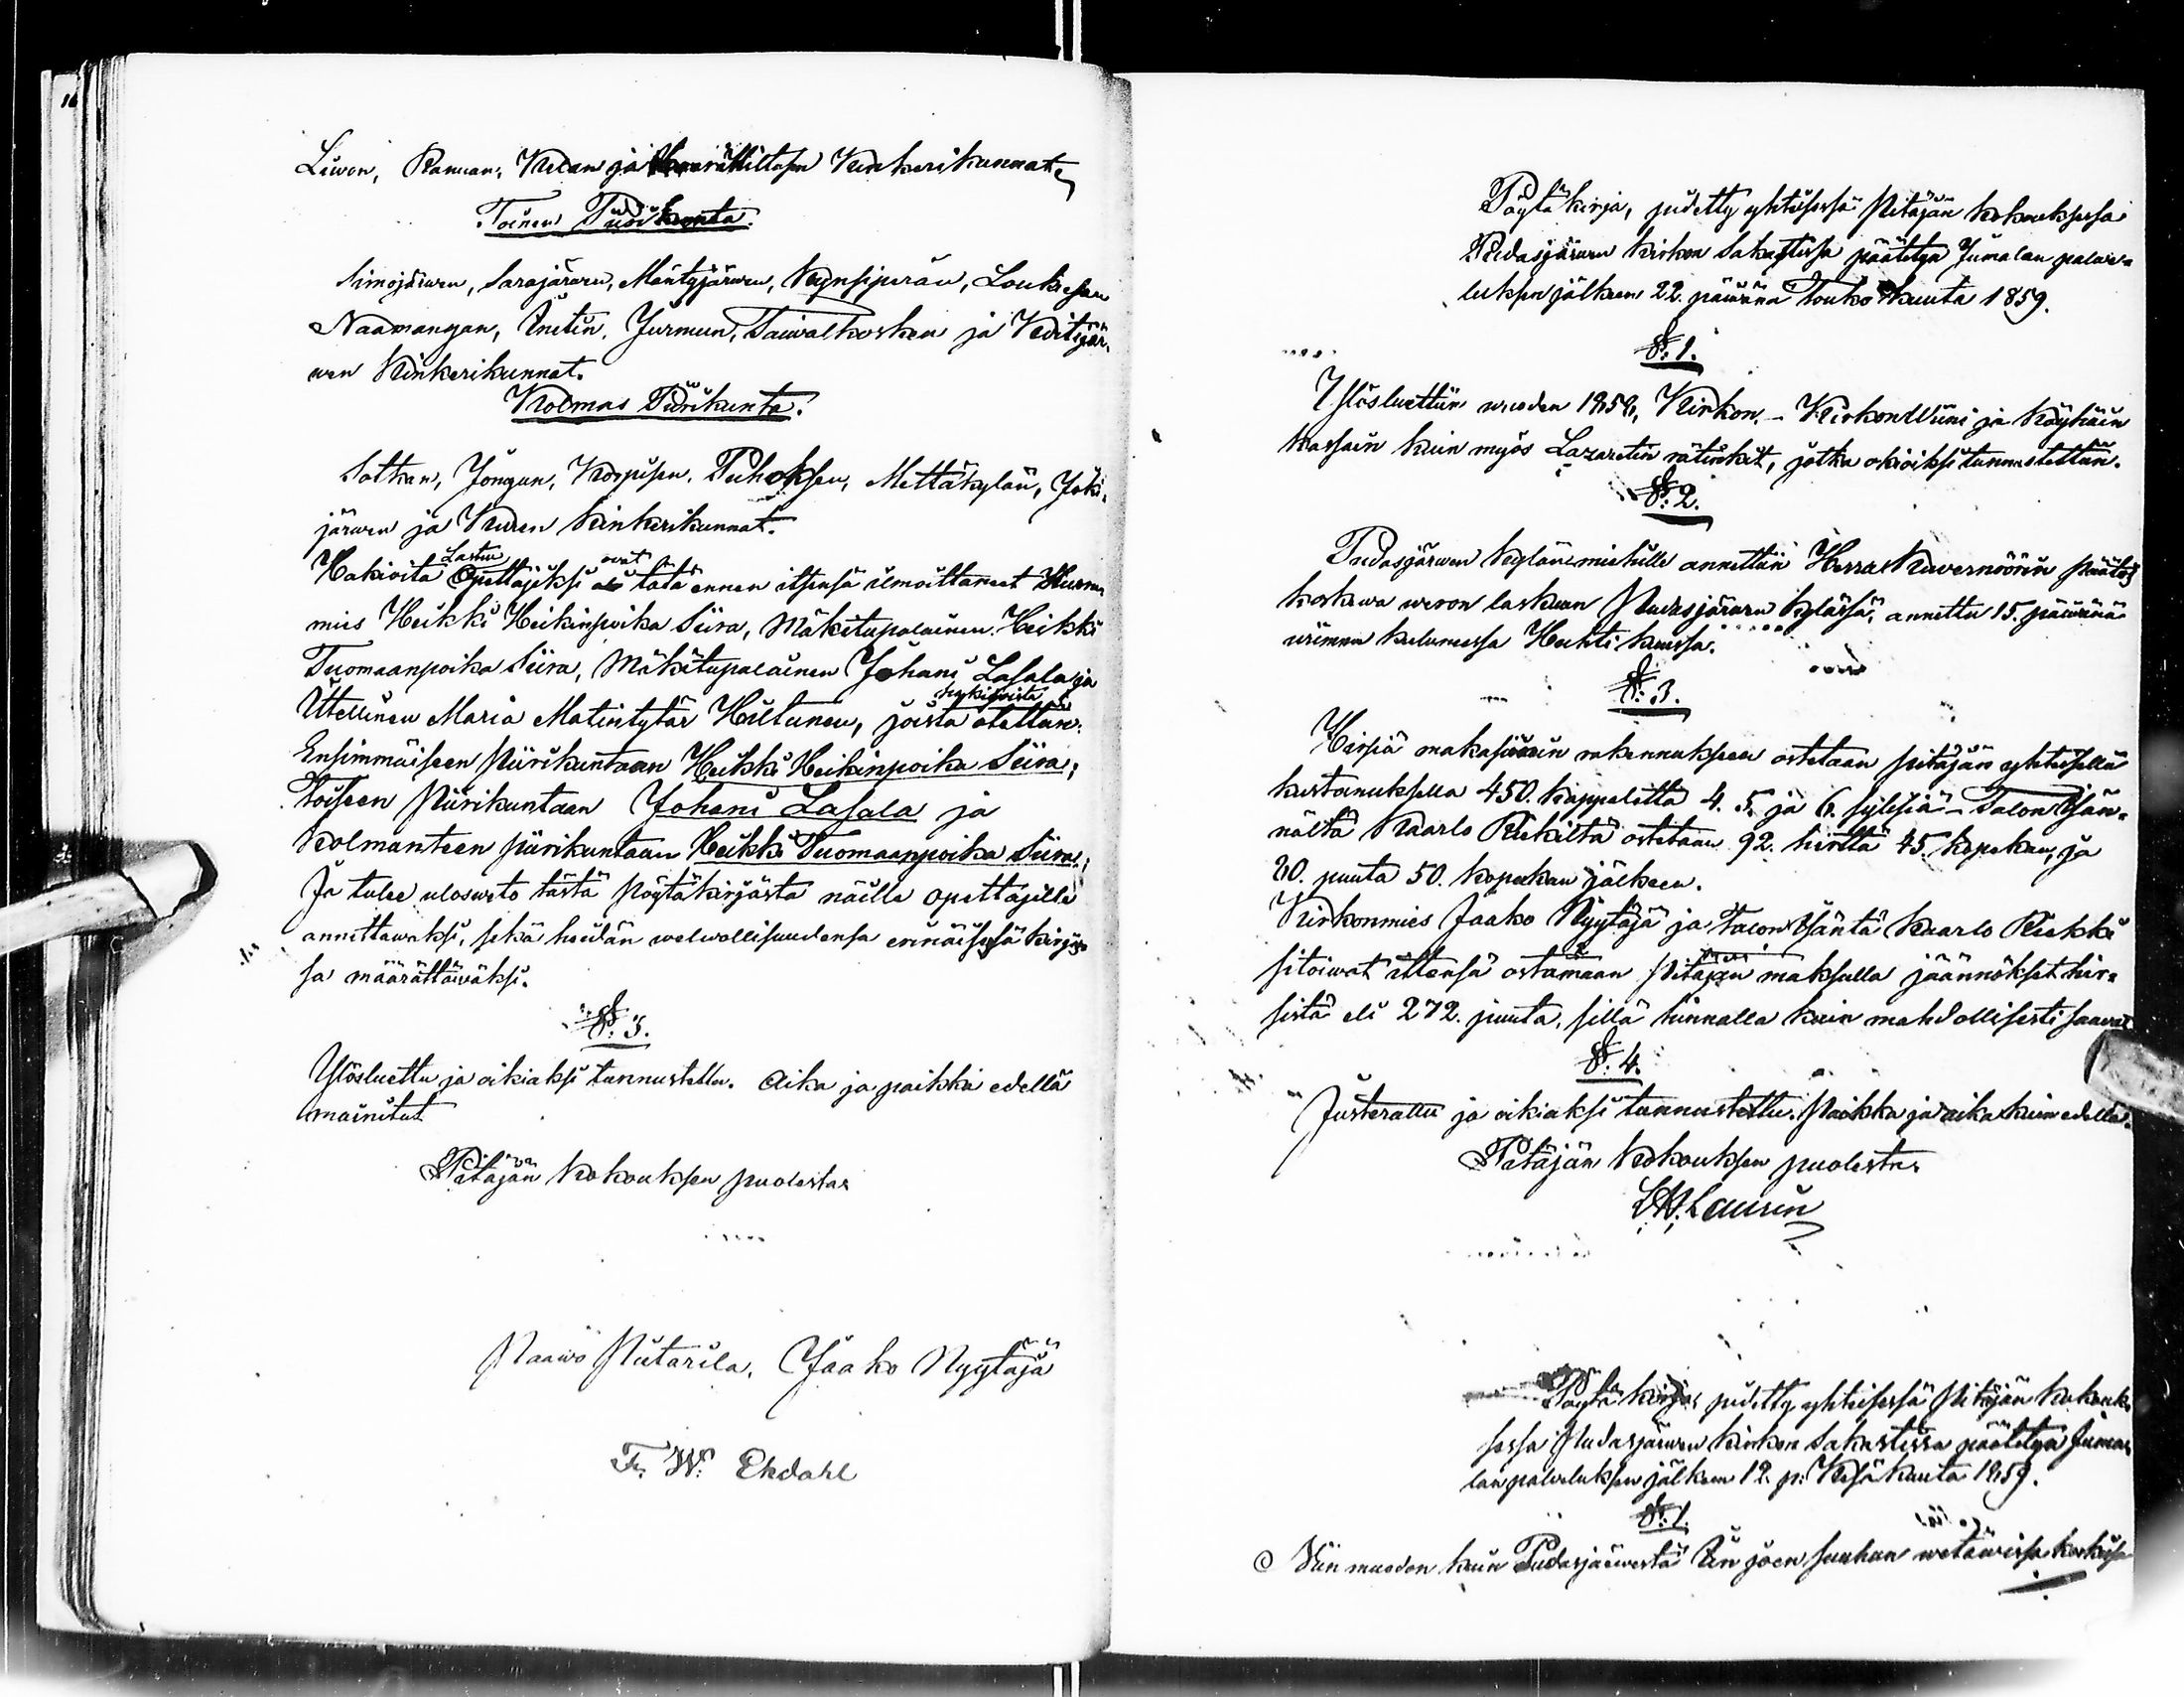 Liwon, Ranuan, ja Kinkerikunnat.
Toinen Piirikunta.
Simojärwen, Sarajärwen, Mäntyjärwen, Kynsiperän, Loukusan
Naamangan, Jurmun, Taiwalkosken ja
wen Kinkerikunnat.
Kolmas Piirikunta.
Sotkan, Jongun, Korpisen, Puhoksen, Mettäkylän, Joki-
järwen ja Kinkerikunnat.
Hakioita Lasten Opettajiksi owat tätä ennen itsensä ilmoittaneet
mies Heikki Heikinpoika Siira, Mäkitupalainen Heikki
Tuomaanpoika Siira, Mäkitupalainen Johani Lasala ja
Ittellinen Maria Matintytär Hiltunen, joista otettiin
Ensimmäiseen Piirikuntaan Heikki Heikinpoika Siira;
Toiseen Piirikuntaan Johani Lasala ja
Kolmanteen piirikuntaan Heikki Tuomaanpoika Siira;
Ja tulee ulosweto tästä Pöytäkirjasta näille opettajille
annettawaksi, sekä heidän welwollisuudensa erinäisesä kirja-
sa määrättäwäksi.
§: 3.
Ylösluettu ja oikiaksi tunnustettu. Aika ja paikka edellä
mainitut
Pitäjän kokouksen puolesta
Paawo Pietarila. Jaako Nyytäjä
Fr. W. Ekdahl
Pöytäkirja, pidetty yhteisessä Pitäjän kokouksessa
Pudasjärwen kirkon Sakastissa päätetyn Jumalan palwe-
luksen jälkeen 22. päiwänä Touko kuuta 1859.
§: 1.
Ylösluettiin wuoden 1858, Kirkon, - Kirkon Wiini ja Köyhäin
kassain kuin myös Lazaretin rätinkit, jotka oikioiksi tunnustettiin.
§: 2.
Pudasjärwen kylänmiehille annettiin Herra Kuwernöörin päätös
koskewa weron laskuun Pudasjärwen kylässä, annettu 15. päiwänä
wiimen kuluneessa Huhti kuussa.
§: 3.
Hirsiä makasiinin rakennukseen ostetaan pitäjän yhteisellä
kustanuksella 450. kappaletta 4. 5. ja 6. sylisiä - Talon Isän-
nältä Kaarlo Riekiltä ostetaan 92. hirttä 45. kopekan, ja
80. puuta 50. kopekan jälkeen.
Kirkonmies Jaako Nyytäjä ja Talon Isäntä Kaarlo Riekki
sitoiwat ittensä ostamaan Pitäjän maksulla jäännökset hir-
sistä eli 272. puuta, sillä hinnalla kuin mahdollisesti saawat
§: 4.
Justerattu ja oikiaksi tunnustettu. Paikka ja aika kuin edellä.
Pitäjän kokouksen puolesta
Pöytäkirja, pidetty yhteisessä Pitäjän kokouk-
sessa Pudasjärwen kirkon Sakastissa päätetyn Juma-
lanpalweluksen jälkeen 12. p: Kesä kuuta 1859.
§: 1.
Niin muodon kuin Pudasjärwestä Iin joen suuhun